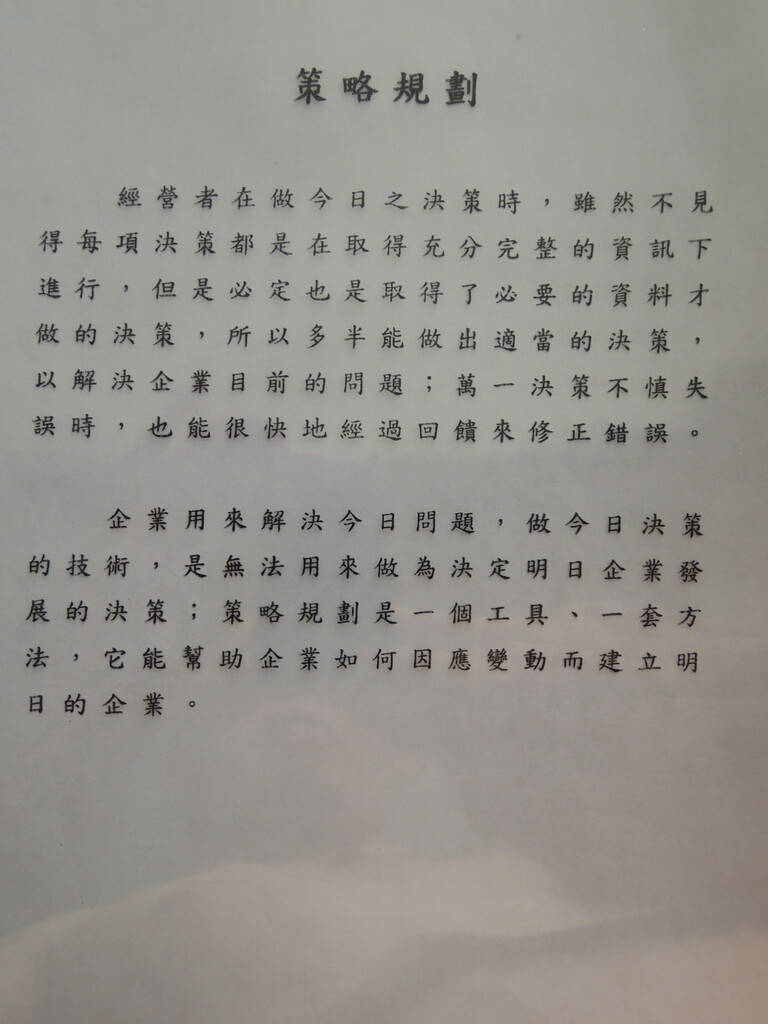 策略規劃
經營者在做今日之決策時，雖然不見
得每項決策都是在取得充分完整的資訊下
進行，但是必定也是取得了必要的資料才
做的決策，所以多半能做出適當的決策，
以解決企業目前的問題；萬一決策不慎失
誤時，也能很快地經過回饋來修正錯誤。
企業用來解決今日問題，做今日決策
的技術，是無法用來做為決定明日企業發
展的決策；策略規劃是一個工具、一套方
法，它能幫助企業如何因應變動而建立明
日的企業。